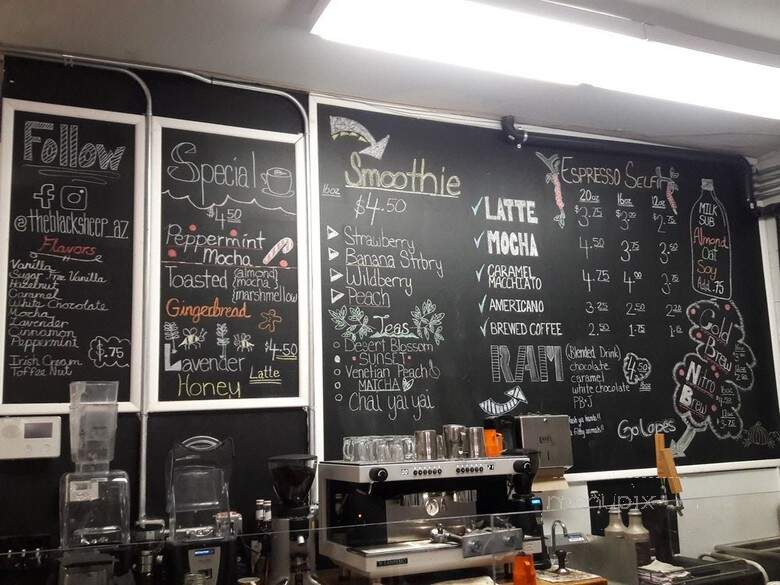 Follow
@theblacksheep_az
Flavors
Vanilla
Sugar Free Vanilla
Hazelnut
Caramel
White Chocolate
Mocha
Lavender
Cinnamon
Peppermint
Irish Cream
Toffee Nut
$.75
Special
$4.50
Peppermint
Mocha
Toasted {almond} {mocha} {marshmellow
Gingerbread
Lavender
$4.50
Honey Latte
16oz Smoothie
$4.50
Strawberry
Banana Strbry
Wildberry
Peach
Teas
Desert Blossom
Sunset
Venetian Peach
MATCHA
Chai yai yai
ESPRESSO SELF
20oz 16oz 12oz
LATTE $3.75 $3.00 $2.75
MOCHA 4.50 3.75 3.50
CARAMEL MACCHIATO 4.75 4.00 3.75
AMERICANO 3.25 2.50 2.20
BREWED COFFEE 2.50 1.75 1.50
MILK
SUB
Almond
Oat
Soy
Add .75
RAM
(Blended Drink)
chocolate
caramel
white chocolate
PB&J
4.50
16oz
Go Lopes
Cold
Brew
Nitro
Brew
menupix